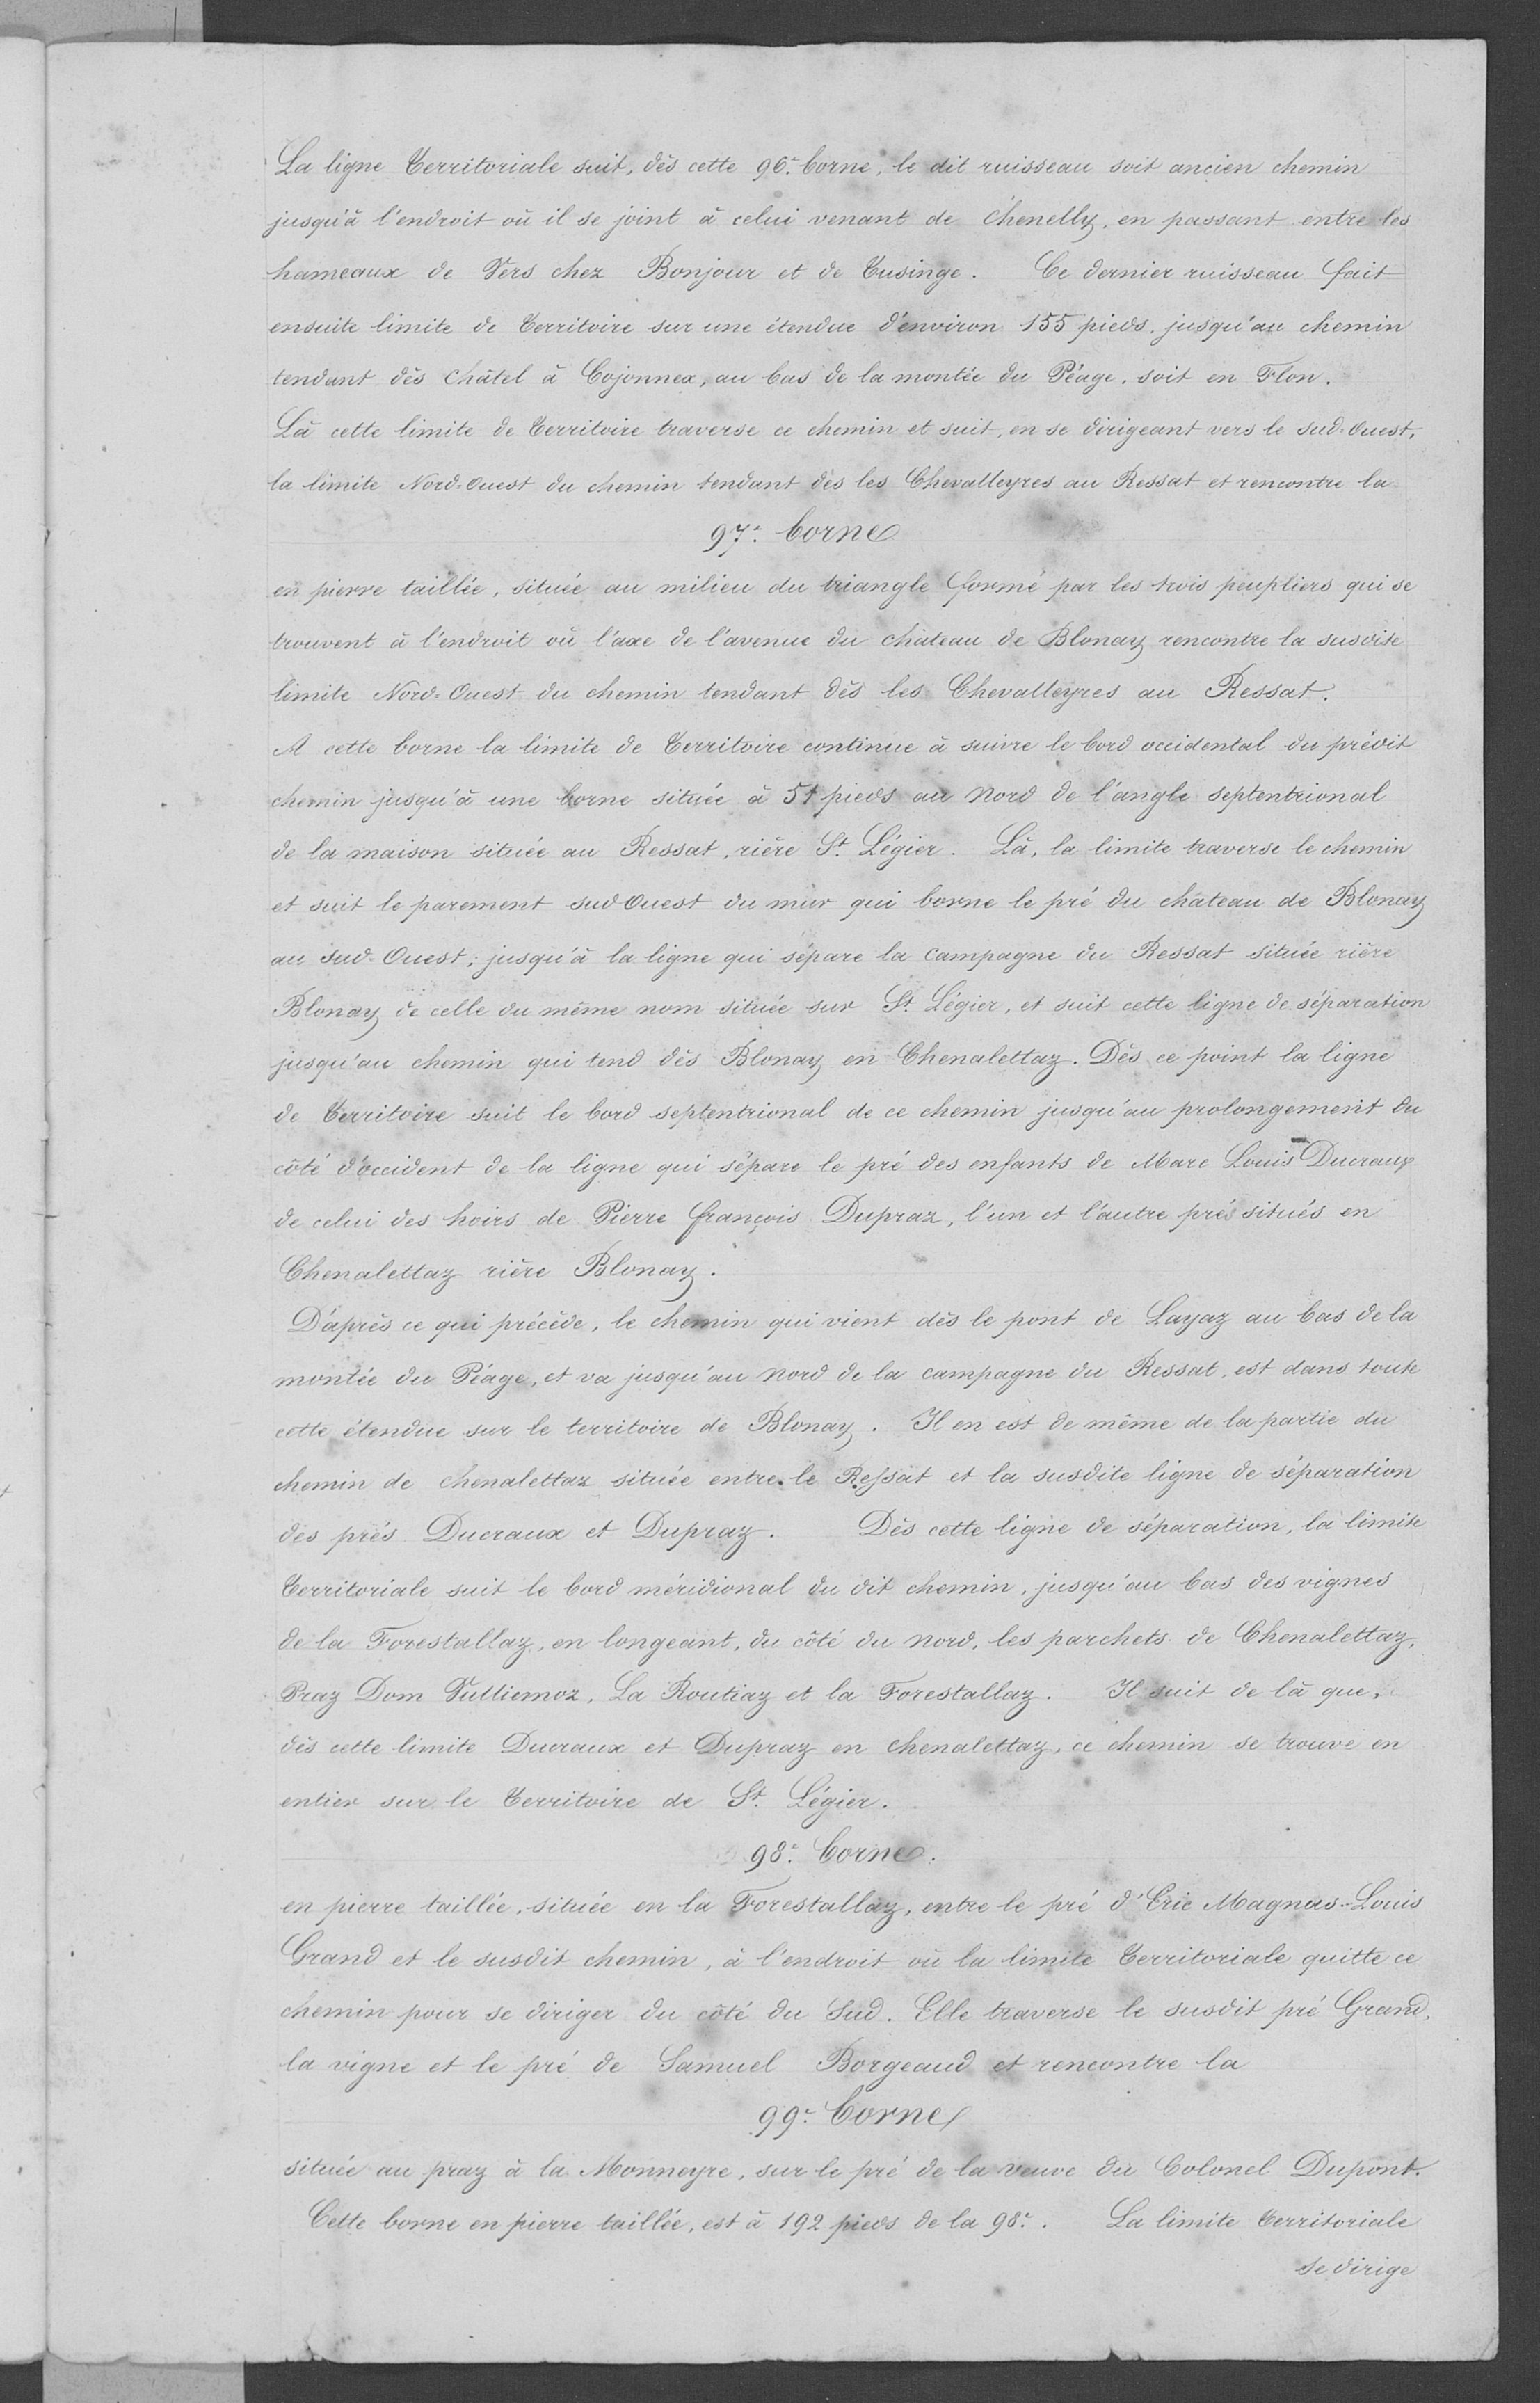 La ligne Territoriale suit, dès cette 96.e borne, le dit ruisseau soit ancien chemin
jusqu'à l'endroit où il se joint à celui venant de Chenelly, en passant entre les
hameaux de Vers chez Bonjour et de Tusinge. Ce dernier ruisseau fait
ensuite limite de Territoire sur une étendue d'environ 155 pieds, jusqu'au chemin
tendant dès Châtel à Cojonnex, au bas de la montée du Péage, soit en Flon.
Là cette limite de Territoire traverse ce chemin et suit, en se dirigeant vers le sud-Ouest,
la limite Nord-Ouest du chemin tendant dès les Chevalleyres au Ressat et rencontre la
97.e borne
en pierre taillée, située au milieu du triangle formé par les trois peupliers qui se
trouvent à l'endroit où l'axe de l'avenue du château de Blonay rencontre la susdite
limite Nord-Ouest du chemin tendant dès les Chevalleyres au Ressat.
A cette borne la limite de Territoire continue à suivre le bord occidental du prédit
chemin jusqu'à une borne située à 51 pieds au Nord de l'angle septentrional
de la maison située au Ressat, rière St. Légier. Là, la limite traverse le chemin
et suit le parement sud Ouest du mur qui borne le pré du château de Blonay
au Sud-Ouest; jusqu'à la ligne qui sépare la campagne du Ressat située rière
Blonay de celle du même nom située sur St. Légier, et suit cette ligne de séparation
jusqu'au chemin qui tend dès Blonay en Chenalettaz. Dès ce point la ligne
de Territoire suit le bord septentrional de ce chemin jusqu'au prolongement du
côté d'occident de la ligne qui sépare le pré des enfants de Marc Louis Ducraux
de celui des hoirs de Pierre François Dupraz, l'un et l'autre prés situés en
Chenalettaz rière Blonay.
D'après ce qui précède, le chemin qui vient dès le pont de Layaz au bas de la
montée du Péage, et va jusqu'au Nord de la campagne du Ressat, est dans toute
cette étendue sur le territoire de Blonay. Il en est de même de la partie du
chemin de chenalettaz située entre le Ressat et la susdite ligne de séparation
des prés Ducraux et Dupraz. Dès cette ligne de séparation, la limite
Territoriale suit le bord méridional du dit chemin, jusqu'au bas des vignes
de la Forestallaz, en longeant, du côté du Nord, les parchets de Chenalettaz,
Praz Dom Vulliemoz, La Routiaz et la Forestallaz. Il suit de là que,
dès cette limite Ducraux et Dupraz en chenalettaz, ce chemin se trouve en
entier sur le Territoire de St. Légier.
98.e borne.
en pierre taillée, située en la Forestallaz, entre le pré d'Eric Magnus-Louis
Grand et le susdit chemin, à l'endroit où la limite Territoriale quitte ce
chemin pour se diriger du côté du Sud. Elle traverse le susdit pré Grand,
la vigne et le pré de Samuel Borgeaud et rencontre la
99.e borne
située au praz à la Monneyre, sur le pré de la veuve du Colonel Dupont.
Cette borne en pierre taillée, est à 192 pieds de la 98.e. La limite Territoriale
se dirige